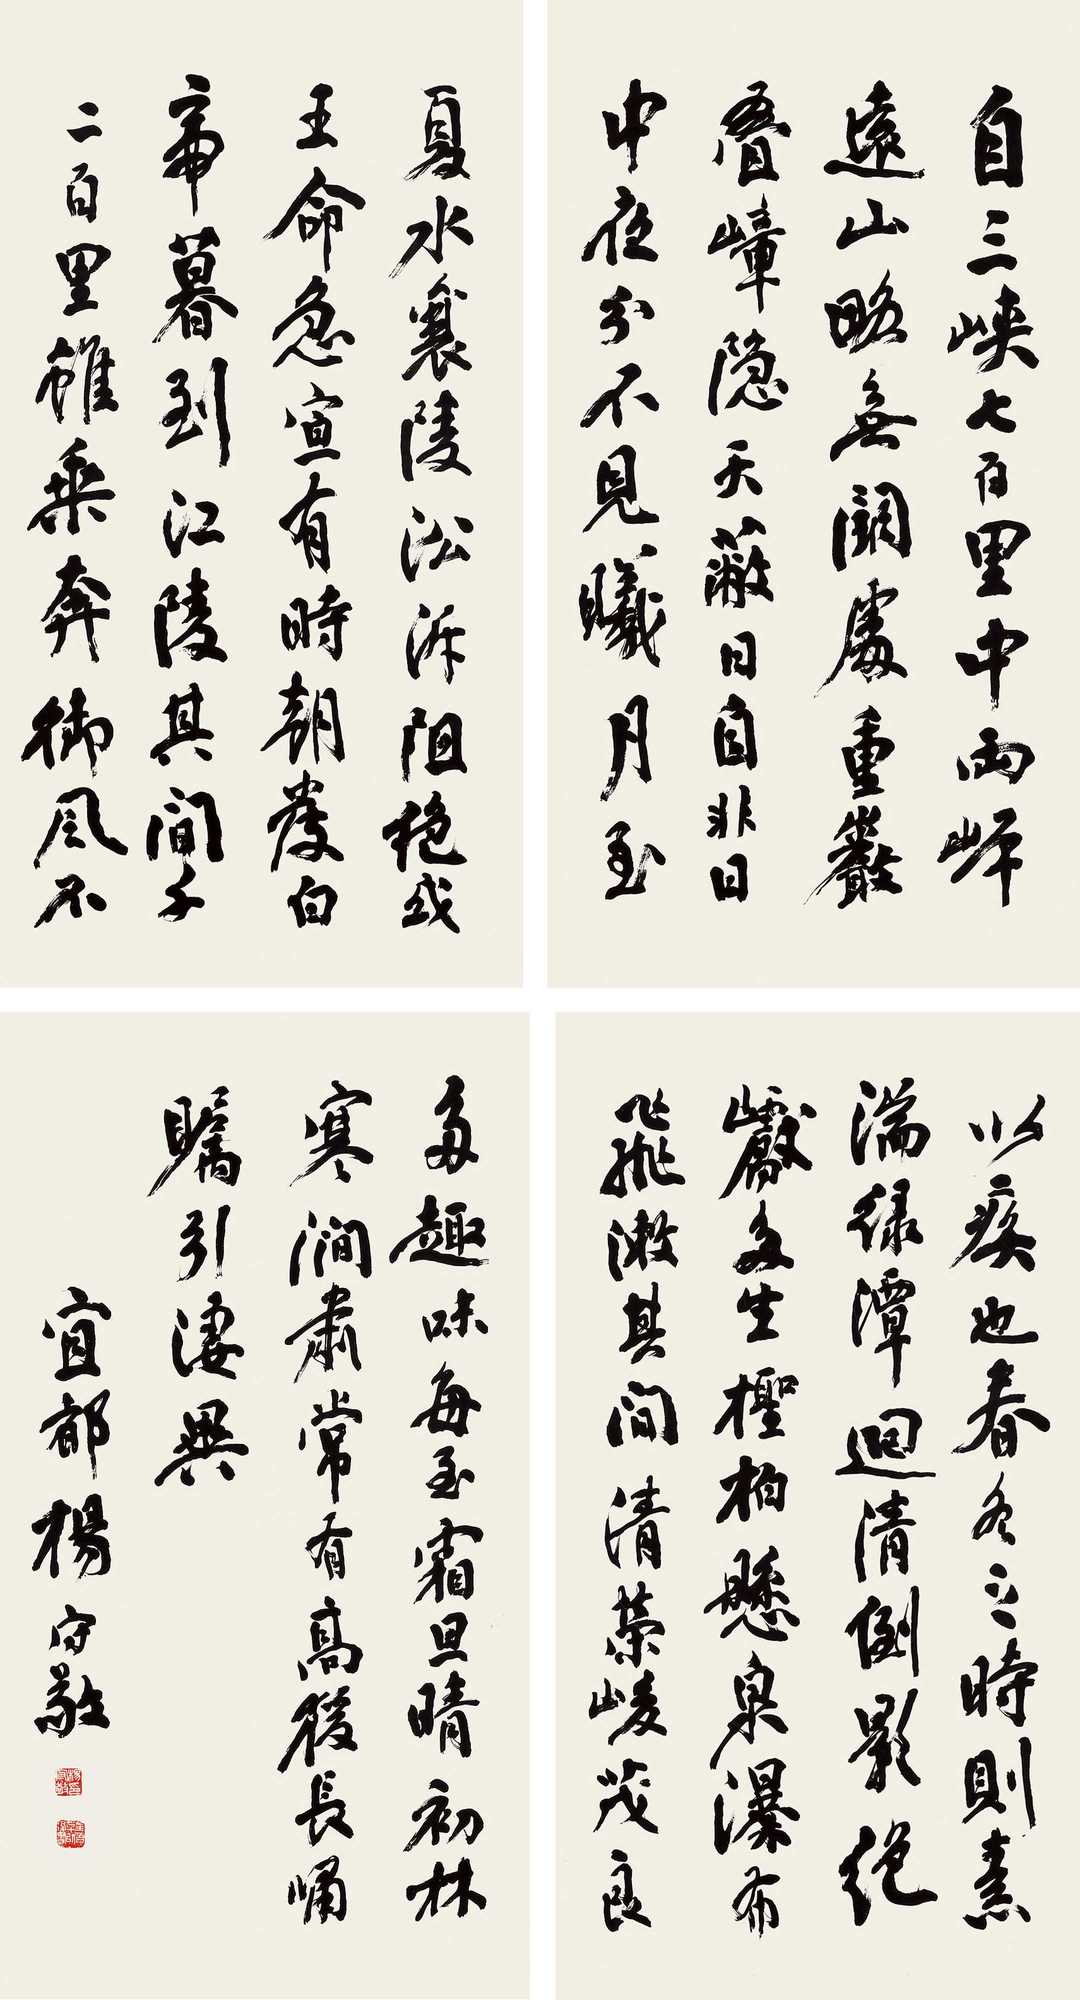 自三峽七百里中兩岸
遠山略無闕處重巖
疊嶂隱天蔽日自非日
中夜分不見曦月至
夏水襄陵沿泝阻絕或
王命急宣有時朝發白
帝暮到江陵其間千
二百里雖乘奔御風不
以疾也春冬之時則素
湍綠潭迴清倒影絕
巘多生檉柏懸泉瀑布
飛漱其間清榮峻茂良
多趣味每至霜旦晴初林
寒澗肅常有高猨長嘯
矚引淒異
宜都楊守敬